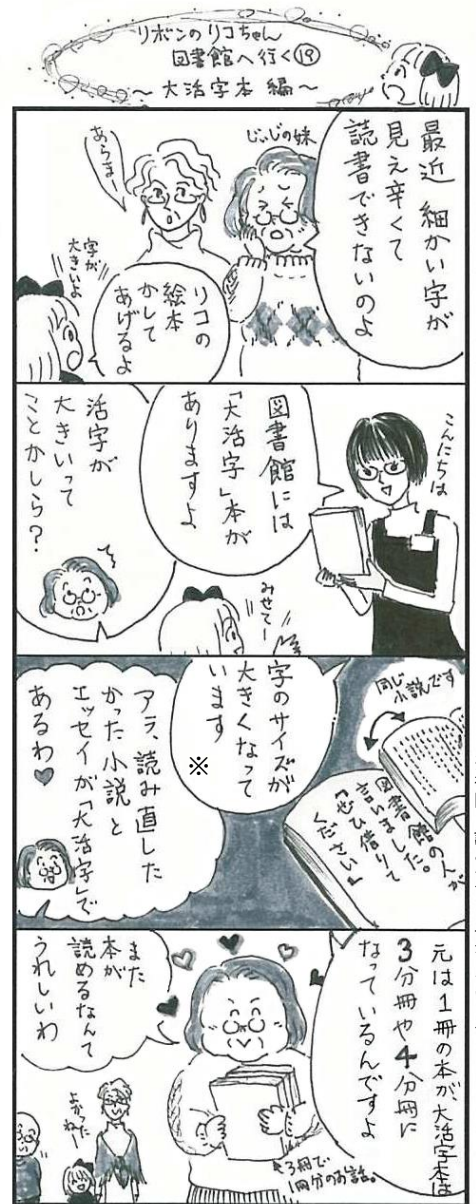 リボンのリコちゃん
図書館へ行く⑲
～大活字本 編～
最近 細かい字が
見え辛くて
読書できないのよ
じぃじの妹
あらまー
リコの
絵本
かして
あげるよ
字が
大きいよ
こんにちは
図書館には
「大活字」本が
ありますよ
活字が
大きいって
ことかしら？
みせてー
同じ
小説です
図書館の人が
言いました。
『ぜひ借りて
ください』
字のサイズが
大きくなって
います
※
アラ、読み直した
かった小説と
エッセイが「大活字」で
あるわ♥
元は1冊の本が、大活字本は
3分冊や4分冊に
なっているんですよ
また
本が
読めるなんて
うれしいわ
よかった
ねー
3冊で
1冊分のお話。